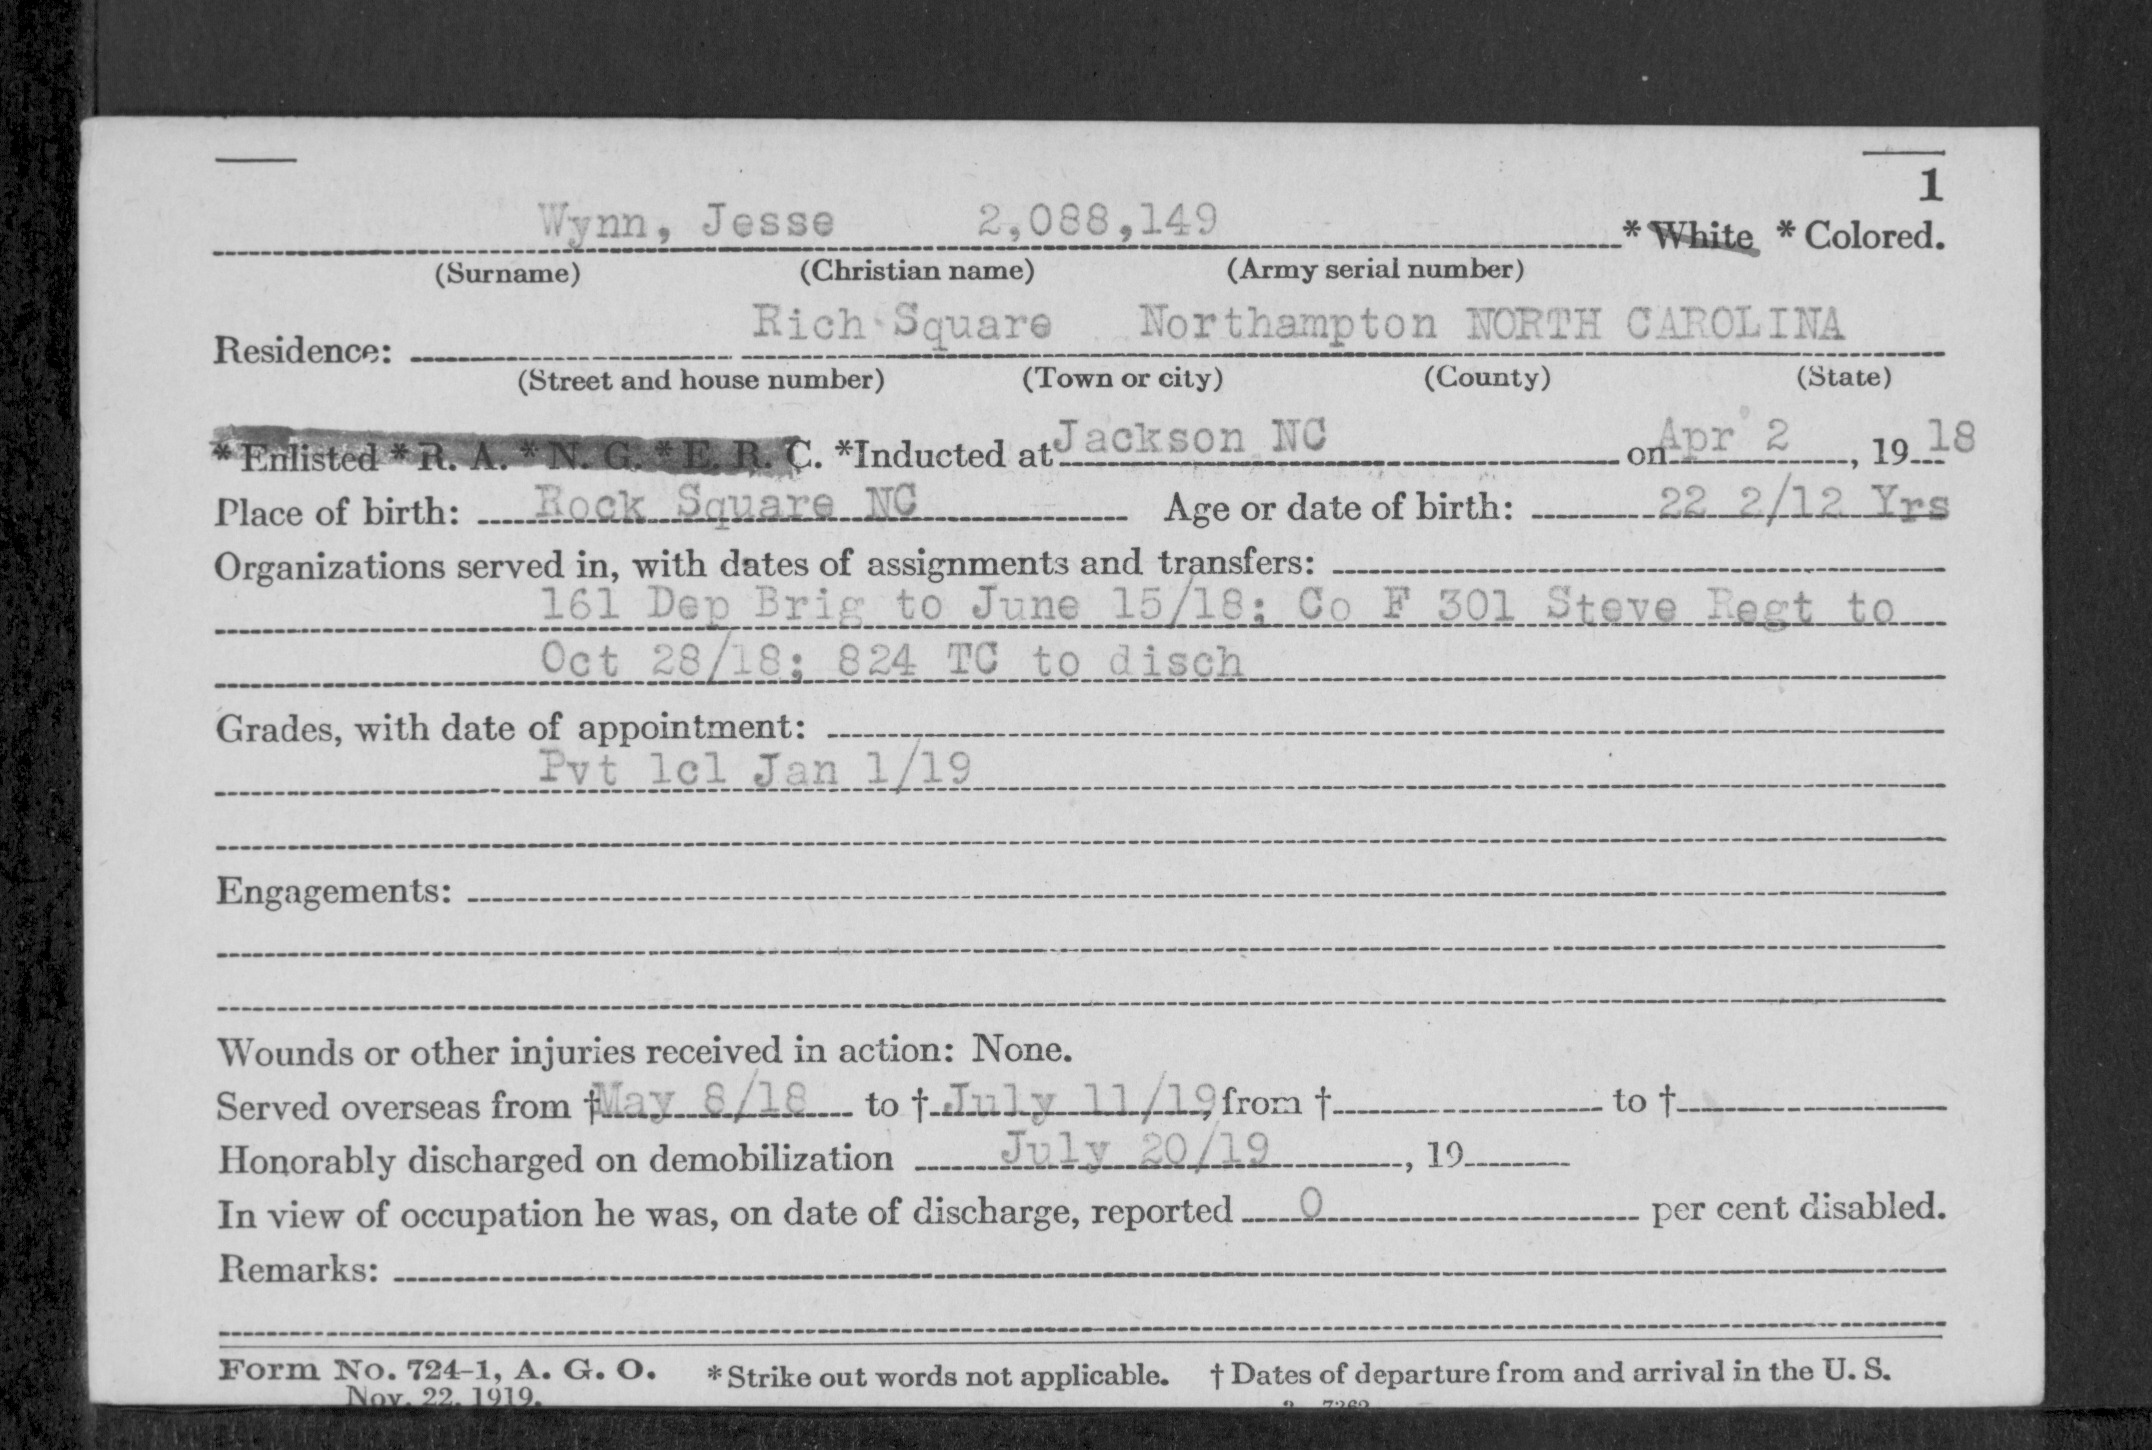 1
Wynn, Jesse 2,088,149 * White * Colored.
(Surname) (Christian name) (Army serial number)
Residence: Rich Square Northampton NORTH CAROLINA
(Street and house number) (Town or city) (County) (State)
* Enlisted * R. A. * N. G. * E. R. C. *Inducted at Jackson NC on Apr 2, 19 18
Place of birth: Rock Square NC Age or date of birth: 22 2/12 Yrs
Organizations served in, with dates of assignments and transfers:
161 Dep Brig to June 15/18; Co F 301 Steve Regt to
Oct 28/18; 824 TC to disch
Grades, with date of appointment:
Pvt 1cl Jan 1/19
Engagements:
Wounds or other injuries received in action: None.
Served overseas from † May 8/18 to † July 11/19, from † to †
Honorably discharged on demobilization July 20/19, 19
In view of occupation he was, on date of discharge, reported 0 per cent disabled.
Remarks:
Form No. 724-1, A. G. O. * Strike out words not applicable. † Dates of departure from and arrival in the U. S.
Nov. 22, 1919.